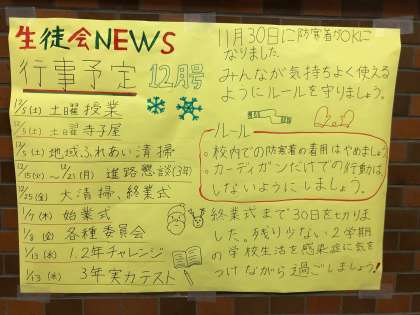 生徒会NEWS
行事予定 12月号
12/5(土) 土曜授業
12/5(土) 土曜寺子屋
12/5(土) 地域ふれあい清掃
12/15(火)〜12/21(月) 進路懇談(3年)
12/25(金) 大清掃、終業式
1/7(木) 始業式
1/8(金) 各種委員会
1/13(水) 1.2年チャレンジ
1/13(水) 3年実力テスト
11月30日に防寒着がOKに
なりました。
みんなが気持ちよく使える
ようにルールを守りましょう。
ルール
・校内での防寒着の着用はやめましょう
・カーディガンだけでの行動は
しないようにしましょう。
終業式まで30日を切りま
した。残り少ない2学期
の学校生活を感染症に気を
つけながら過ごしましょう!